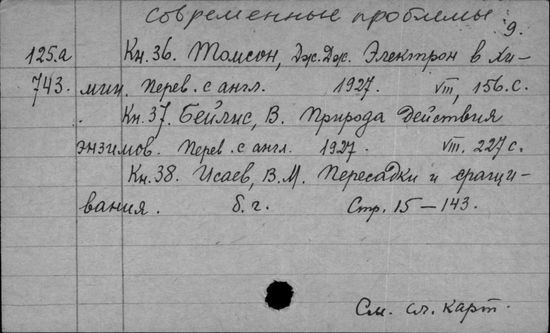 современные проблемы
9.
125.а Кн. 36. Томсон, Дж. Дж. Электрон в хи-
743. мии. Перев. с англ. 1927. VIII, 156.с.
Кн. 37. Бейлис, В. Природа действия
энзимов. Перев. с англ. 1927. VIII. 227 с.
Кн. 38. Исаев, В.М. Пересадки и сращи-
вания. б. г. Стр. 15 – 143.
См. сл. карт.